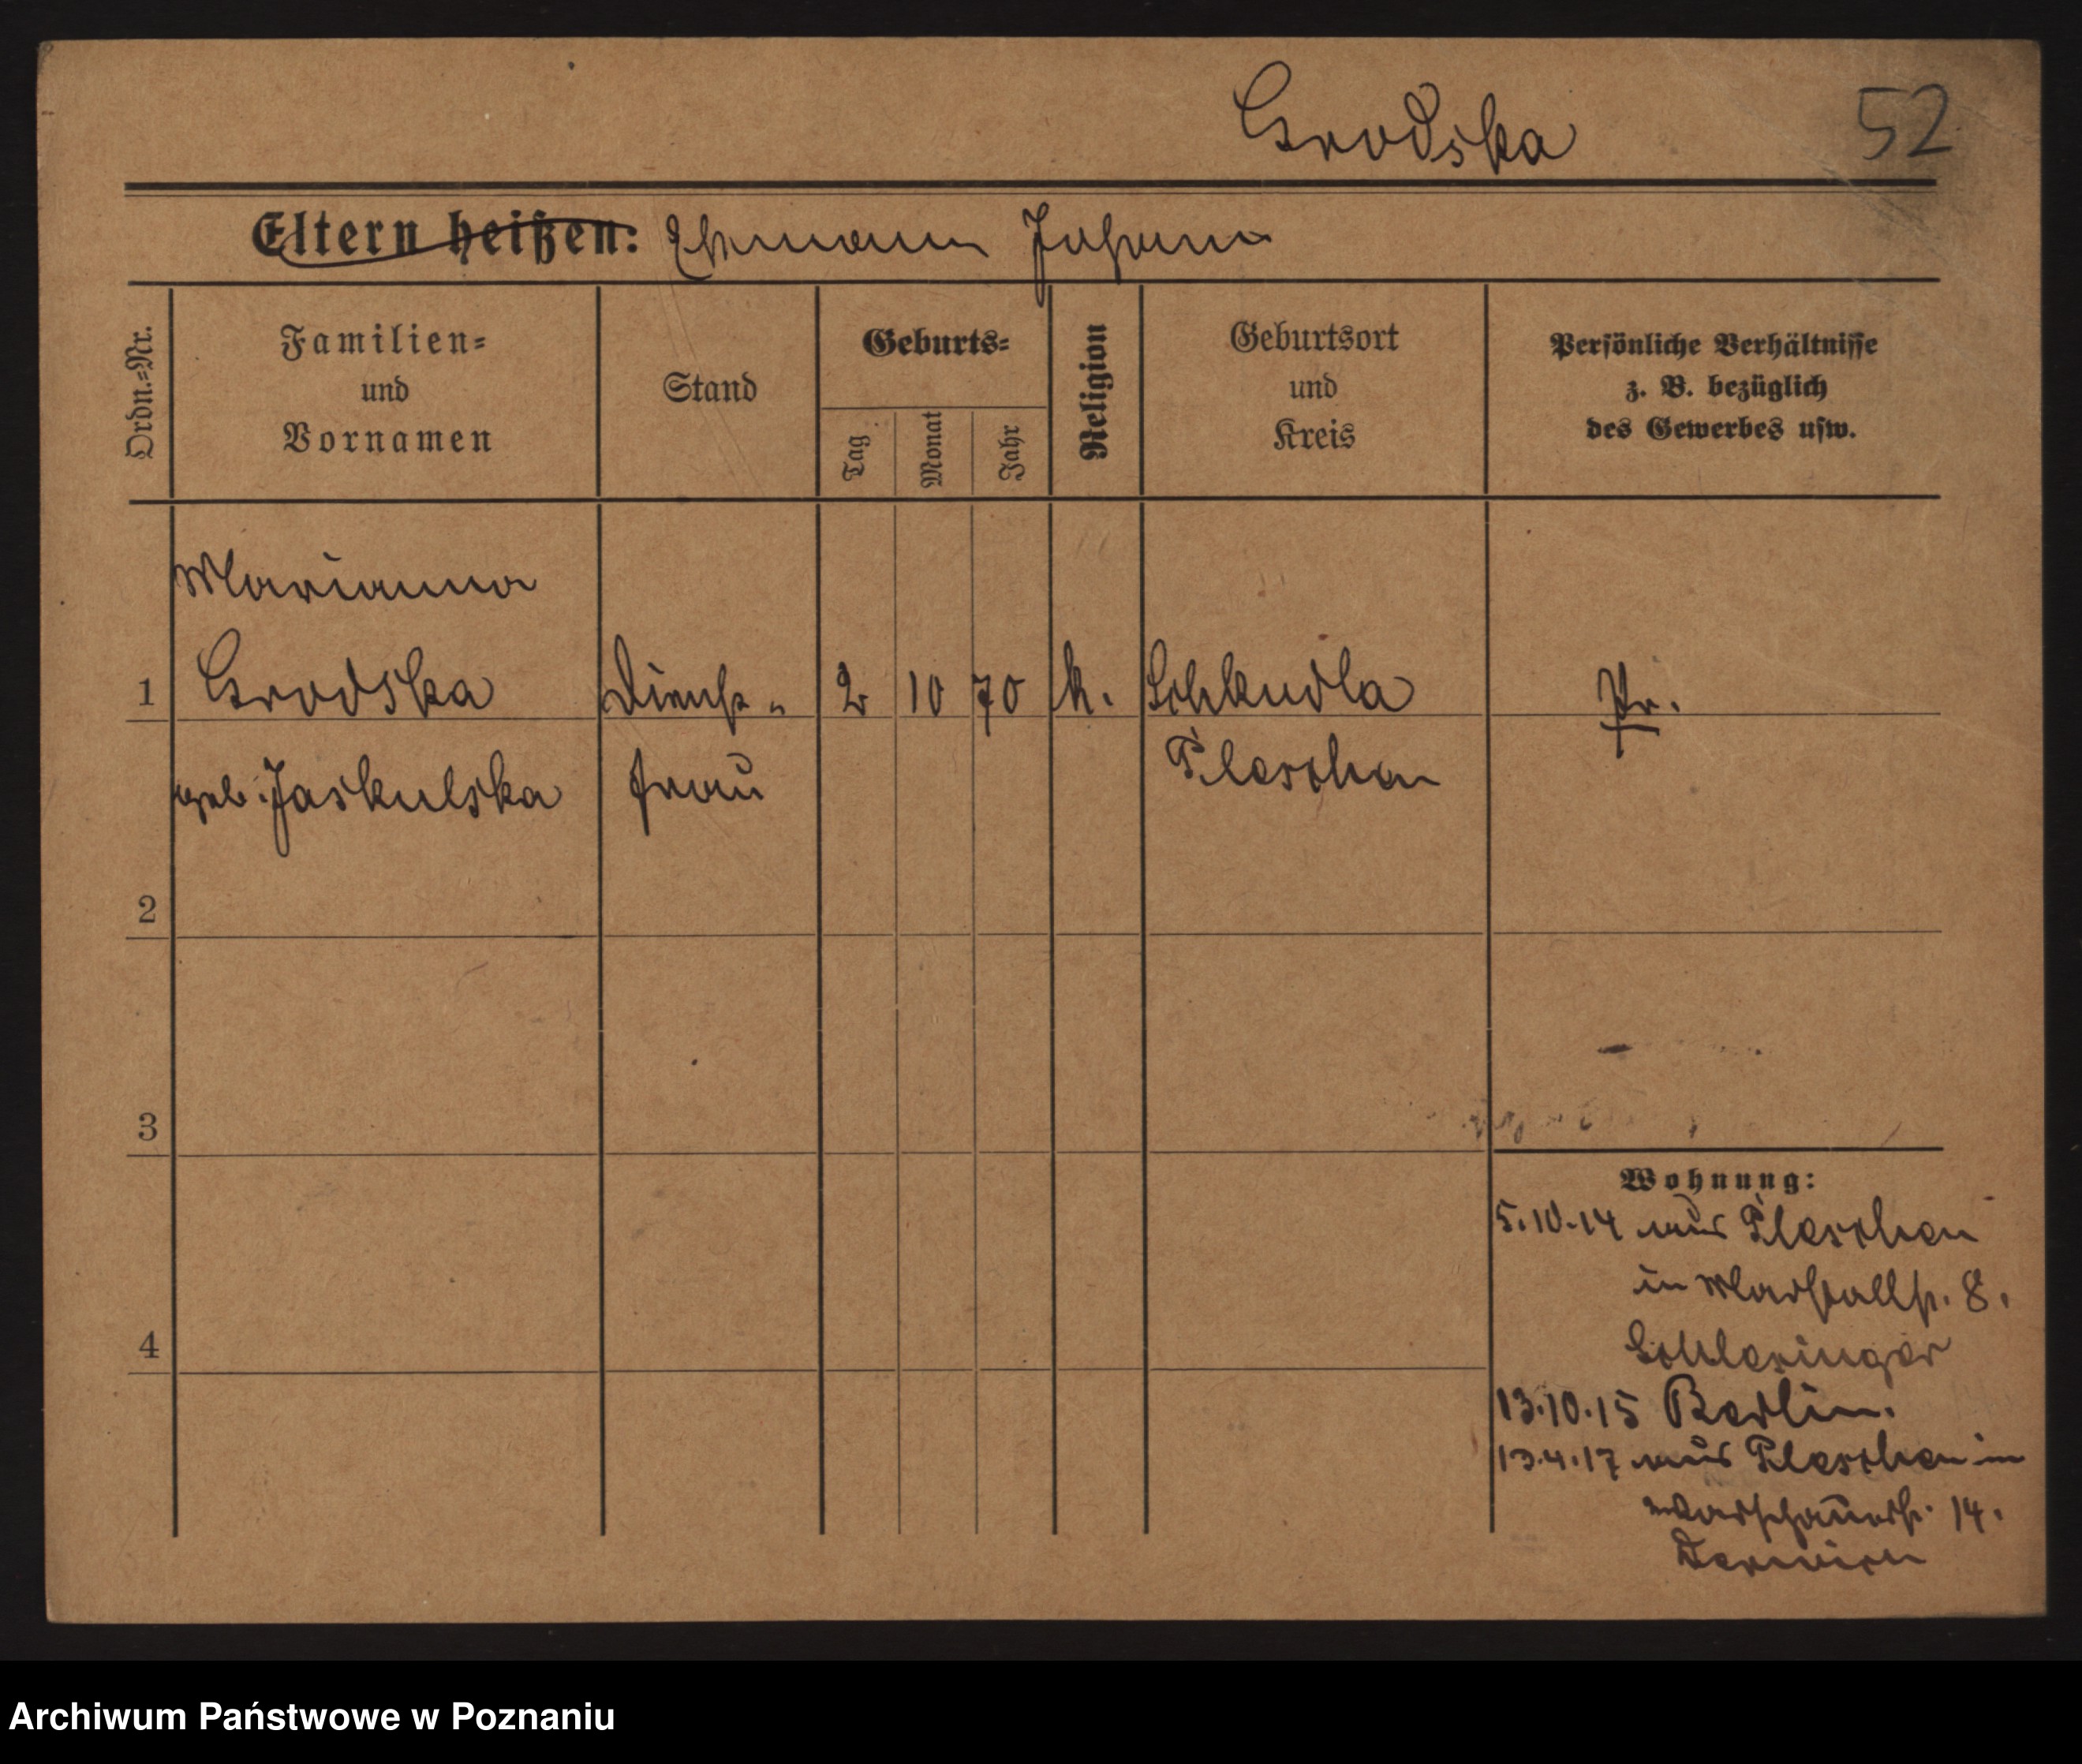 Grodska 52
Eltern heißen: Ehemann Johann
Ordn.-Nr.
Familien-
und
Vornamen
Stand
Geburts-
Tag
Monat
Jahr
Religion
Geburtsort
und
Kreis
Persönliche Verhältnisse
z. B. bezüglich
des Gewerbes usw.
Marianna
1 Grodska Dienst- 2 10 70 k. Schkudla Pr.
geb. Jaskulska frau Pleschen
2
3
4
Wohnung:
5.10.14 aus Pleschen
in Marstallstr. 8.
Schlesinger
13.10.15 Berlin.
13.4.17 aus Pleschen in
Warschauerstr. 14.
Archiwum Państwowe w Poznaniu